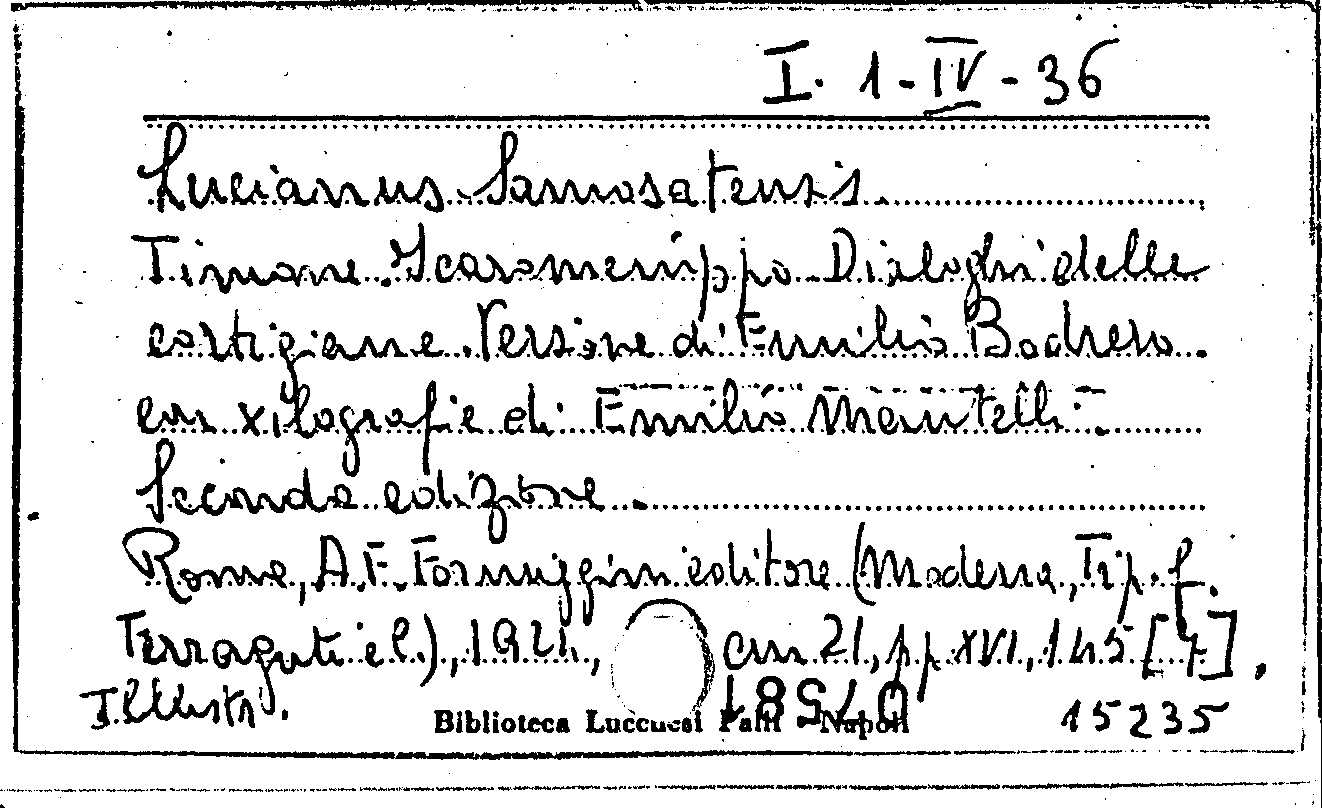 I. 1-IV-36
Lucianus Samosatensis.
Timone. Icaromenippo. Dialoghi delle
cortigiane. Versione di Emilio Bodrero
con xilografie di Emilio Mantelli.
Seconda edizione.
Roma, A. F. Formiggini editore (Modena, Tip. f.
Ferraguti e C.), 1921, cm 21, pp. XVI, 145 [7].
Illustr. 15235
Biblioteca Lucchesi Palli - Napoli